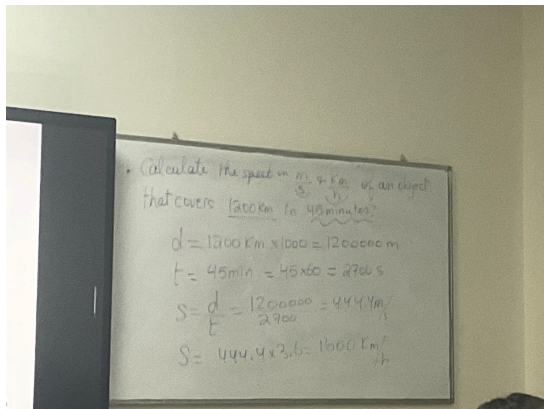 • Calculate the speed in m/s & km/h of an object
that covers 1200 km in 45 minutes?
d = 1200 Km x 1000 = 1200000 m
t = 45min = 45x60 = 2700 s
S = d/t = 1200000/2700 = 444.4 m/s
S = 444.4 x 3.6 = 1600 Km/h